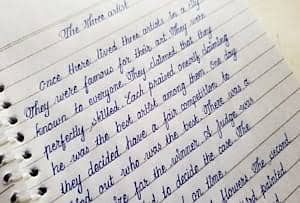 The three artist
Once there lived three artists in a city
They were famous for their art. They were
known to everyone. They claimed that they
perfectly skilled. Each praised overly claiming
he was the best artist among them. One day
they decided have a fair competition to
out who was the best. There was a
for the winner. A judge was
to decide the case. The
on time.
flowers. The second
painted